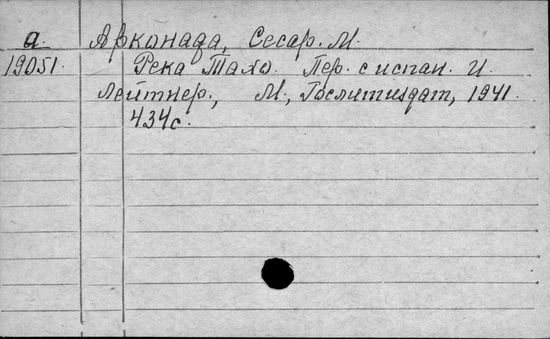 а. Арконада, Сесар. М.
19051. Река Тахо. Пер. с испан. И.
Лейтнер., М., Гослитиздат, 1941.
434с.